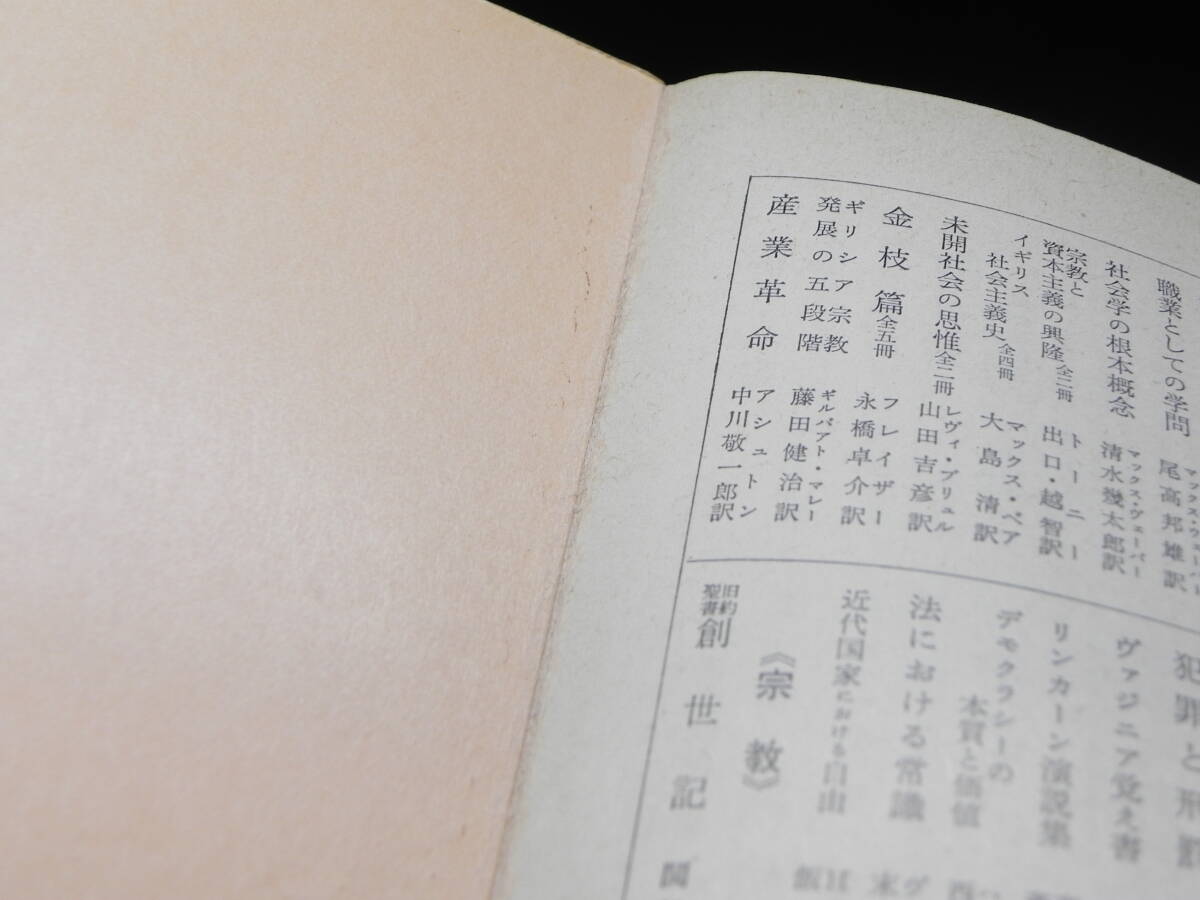 職業としての学問 マックス・ヴェーバー 尾高邦雄訳
社会学の根本概念 マックス・ヴェーバー 清水幾太郎訳
宗教と資本主義の興隆 全二冊 トーニー 出口・越智訳
イギリス社会主義史 全四冊 マックス・ベア 大島清訳
未開社会の思惟 全二冊 レヴィ・ブリュル 山田吉彦訳
金枝篇 全五冊 フレイザー 永橋卓介訳
ギリシア宗教発展の五段階 ギルバアト・マレー 藤田健治訳
産業革命 アシュトン 中川敬一郎訳
犯罪と刑罰
ヴァジニア覚え書
リンカーン演説集
デモクラシーの本質と価値
法における常識
近代国家における自由
《宗教》
旧約聖書 創世記 関